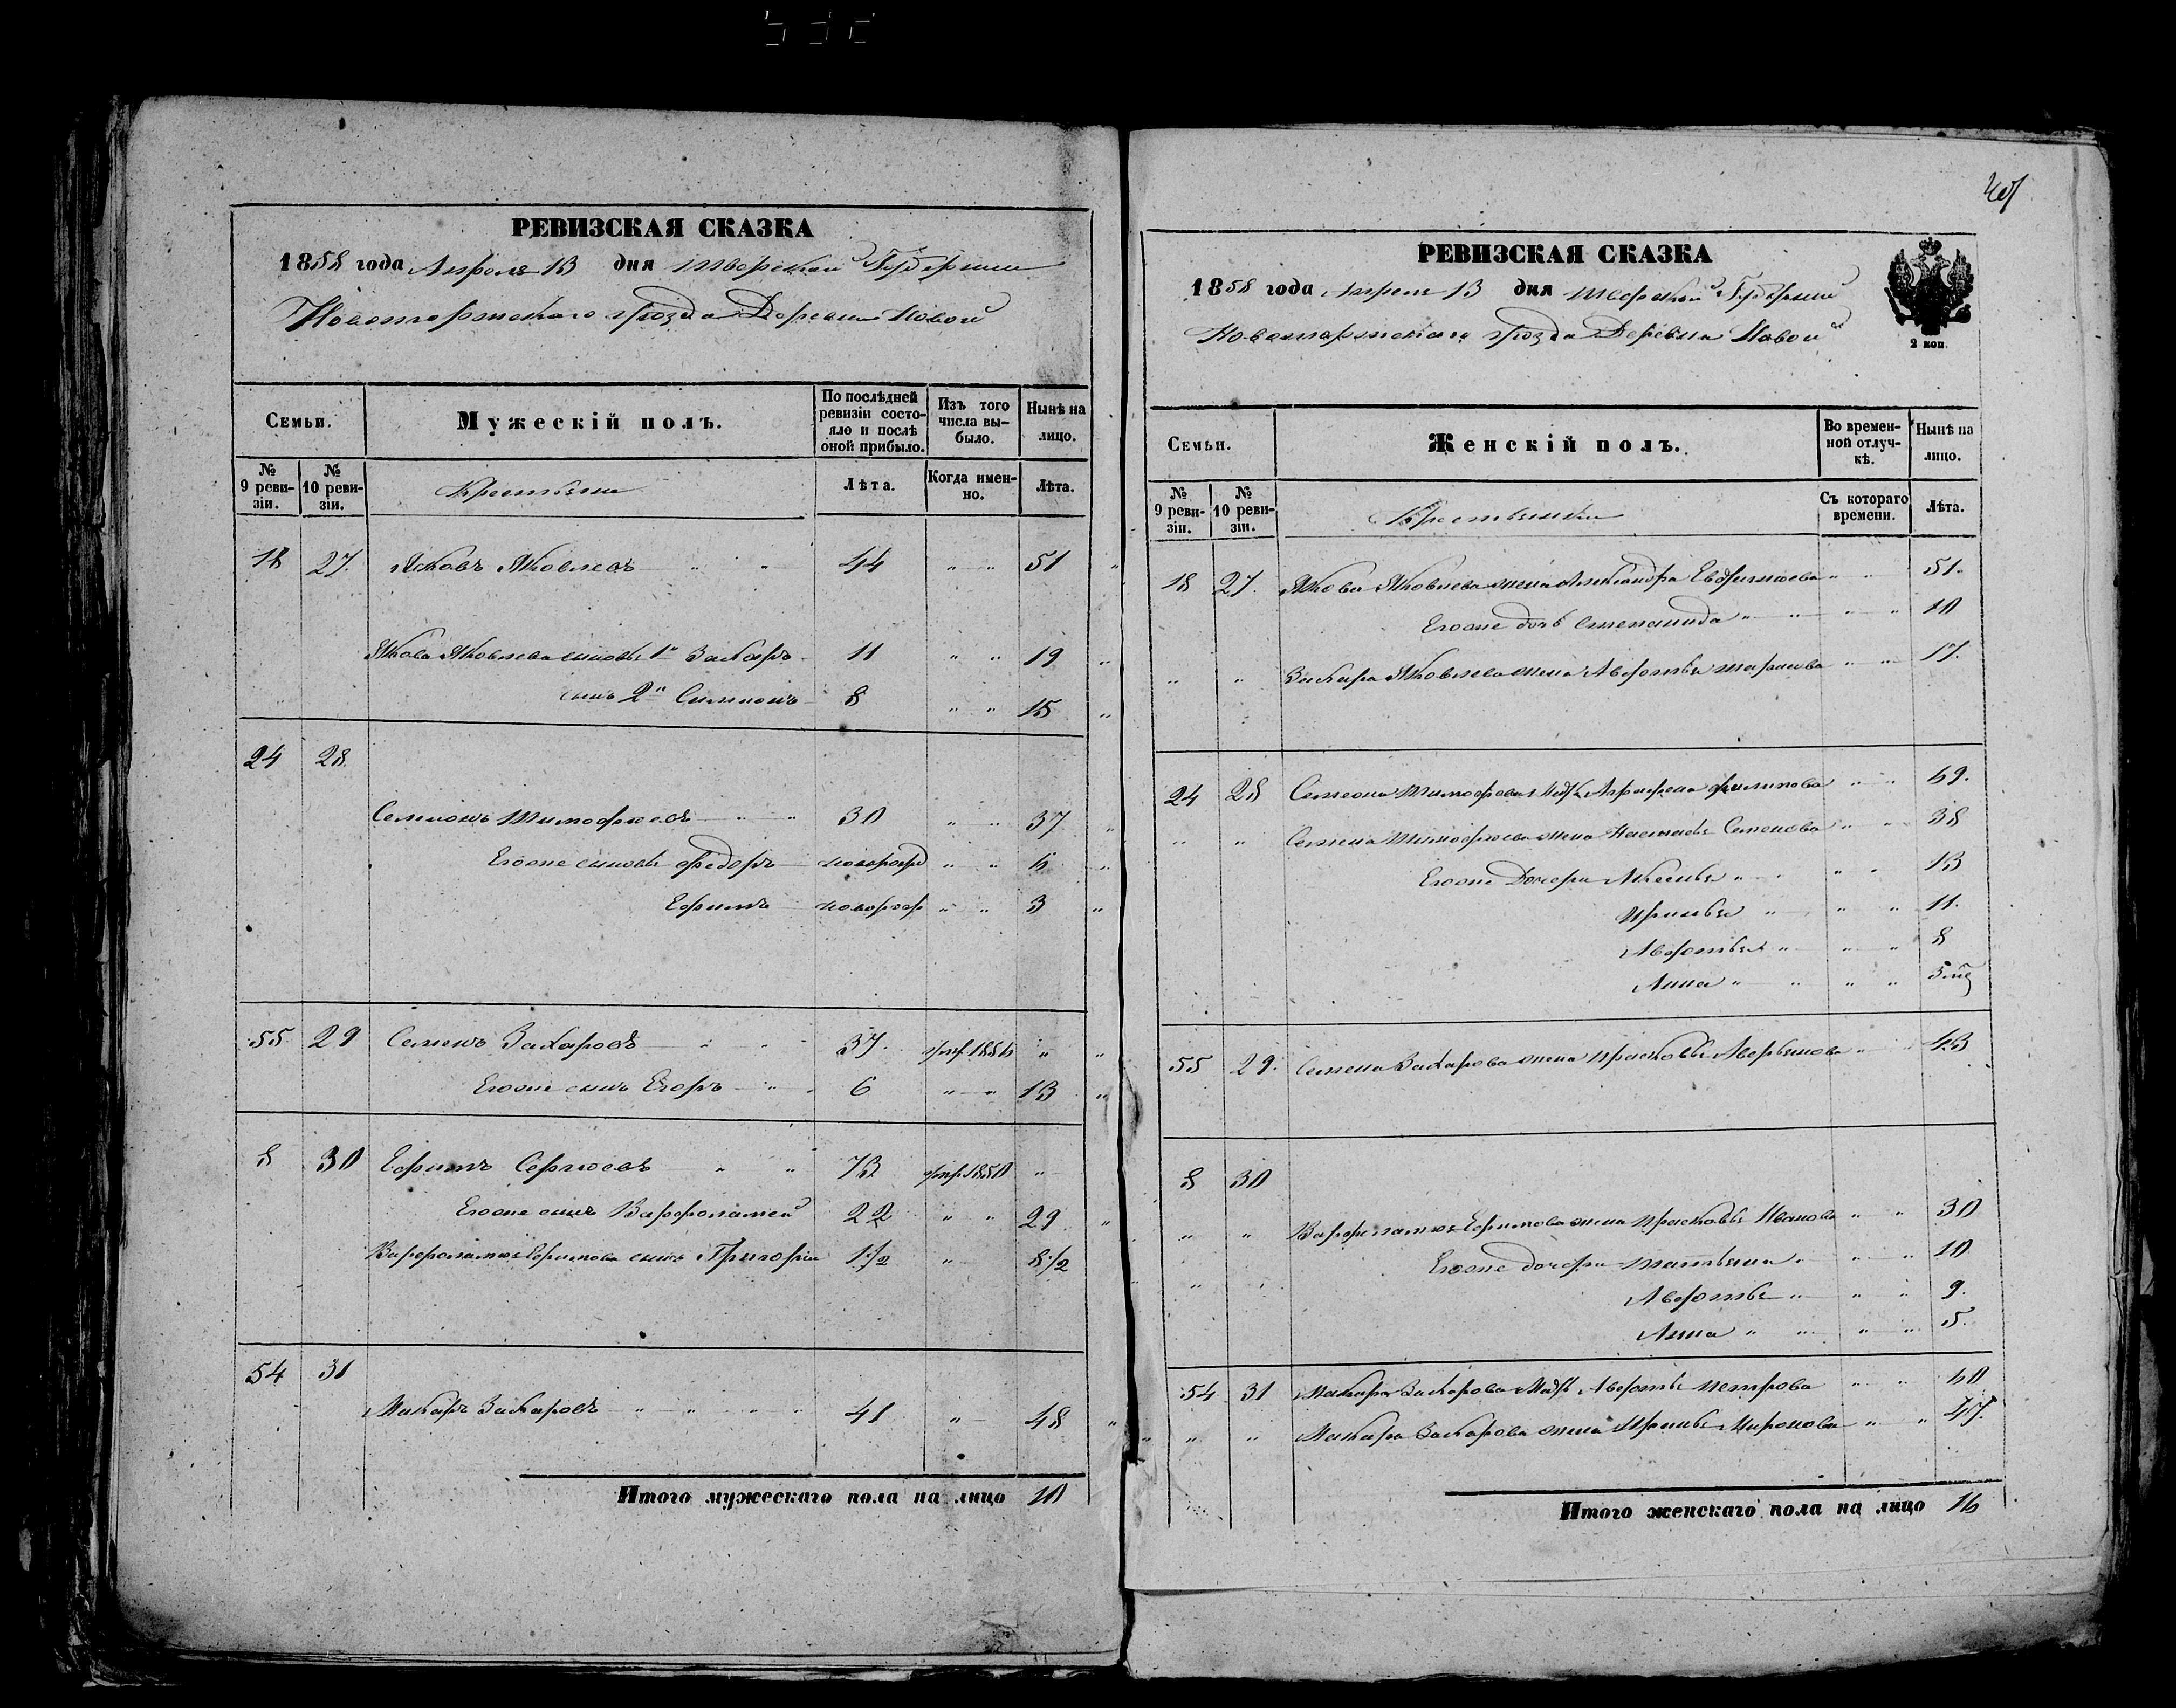 РЕВИЗСКАЯ СКАЗКА
1858 года Апреля 13 дня Тверской Губернии
Новоторжскаго уѣзда Деревни Новой
Семьи.
Мужескій полъ.
По послѣдней ревизіи состояло и послѣ оной прибыло.
Изъ того числа выбыло.
Ныне на лицо.
№ 9 ревизіи.
№ 10 ревизіи.
Крестьяне
Лѣта.
Когда именно.
Лѣта.
18 27. Яковъ Яковлевъ 44 51
Якова Яковлева сыновья 1й Захаръ 11 19
сынъ 2й Симионъ 8 15
24 28
Семионъ Тимофѣевъ 30 37
Егоже сыновья Федоръ новорожд 6
Ефимъ новорож 3
55 29 Семенъ Захаровъ 37. умр. 1856
Егоже сынъ Егоръ 6 13
8 30 Ефимъ Сергѣевъ 73 умр. 1850
Егоже сынъ Варфоламей 22 29
Варфоламея Ефимова сынъ Григорій 1 1/2 8 1/2
54 31
Макаръ Захаровъ 41 48
Итого мужескаго пола на лицо 10
РЕВИЗСКАЯ СКАЗКА
1858 года Апреля 13 дня Тверской Губерний
Новоторжскаго уѣзда Деревни Новой
2 коп.
Семьи.
Женскій полъ.
Во временной отлучкѣ.
Нынѣ на лицо.
№ 9 ревизіи.
№ 10 ревизіи.
Крестьянки
Съ котораго времени.
Лѣта.
18 27. Якова Яковлева жена Александра Евфимоева 51.
Егоже дочь Степанида 10
Захара Яковлева жена Авдотья Тарасова 17.
24 28 Семеона Тимофѣева Мать Аграфена Филипова 69.
Семена Тимофѣева жена Настасья Семенова 38
Егоже Дочери Аксинья 13
Иринья 11.
Авдотья 8
Анна 5 мѣ
55 29. Семена Захарова жена Прасковья Аверьянова 43
8 30
Варфоламея Ефимова жена Прасковья Иванова 30
Егоже дочери Татьяна 10
Авдотья 9.
Анна 5.
54 31 Макара Захарова Мать Авдотья Петрова 60
Макара Захарова жена Иринья Миронова 47.
Итого женскаго пола на лицо 16